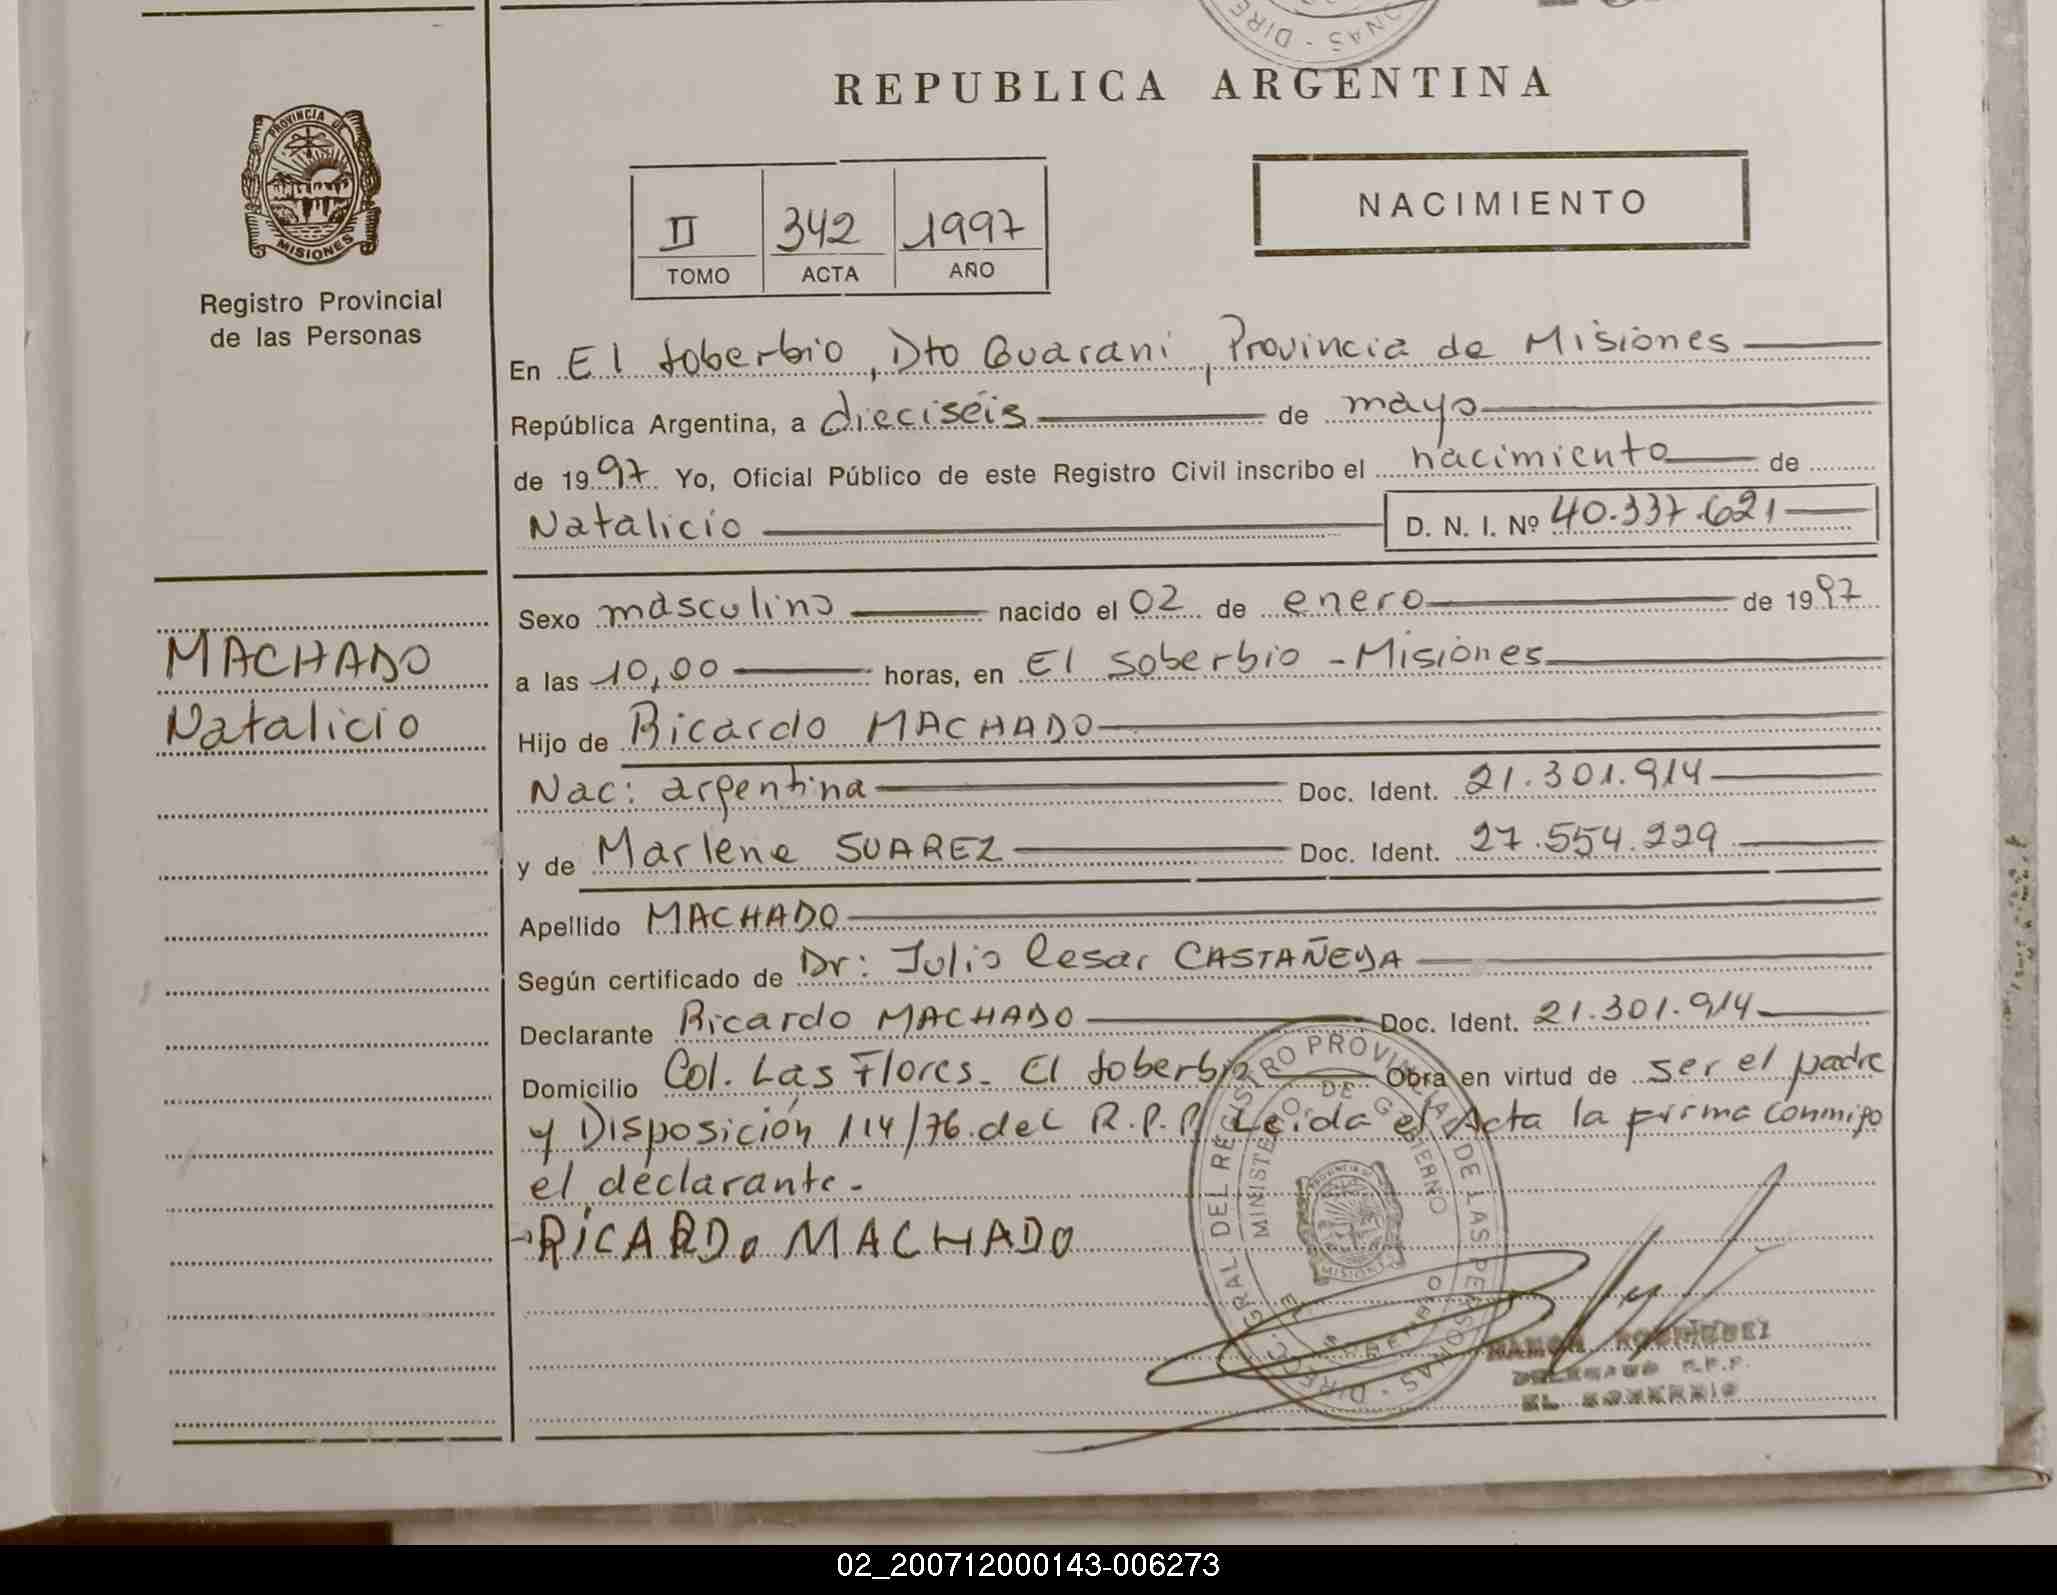 REPUBLICA ARGENTINA
NACIMIENTO
PROVINCIA DE
MISIONES
Registro Provincial
de las Personas
II 342 1997
TOMO ACTA AÑO
En El Soberbio, Dto Guarani, Provincia de Misiones
República Argentina, a dieciséis de mayo
de 1997 Yo, Oficial Público de este Registro Civil inscribo el nacimiento de
Natalicio D. N. I. Nº 40.337.621
MACHADO
Natalicio
Sexo masculino nacido el 02 de enero de 1997
a las 10,00 horas, en El Soberbio - Misiones
Hijo de Ricardo MACHADO
Nac: argentina Doc. Ident. 21.301.914
y de Marlene SUAREZ Doc. Ident. 27.554.229
Apellido MACHADO
Según certificado de Dr: Julio Cesar CASTAÑEDA
Declarante Ricardo MACHADO Doc. Ident. 21.301.914
Domicilio Col. Las Flores - El Soberbio Obra en virtud de ser el padre
y Disposición 114/76 del R.P.P. Leida el Acta la firma conmigo
el declarante.-
RICARDO MACHADO
DIREC. GRAL. DEL REGISTRO PROVINCIAL DE LAS PERSONAS
MINISTERIO DE GOBIERNO
EL SOBERBIO
MISIONES
RAMON RODRIGUEZ
DELEGADO R.P.P.
EL SOBERBIO
02_200712000143-006273